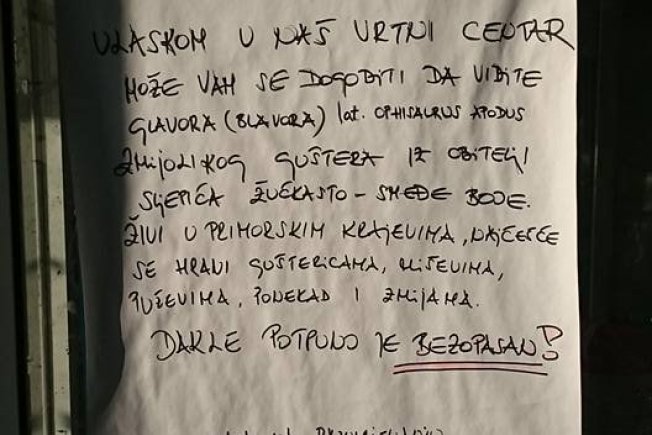 ULASKOM U NAŠ VRTNI CENTAR
MOŽE VAM SE DOGODITI DA VIDITE
GLAVORA (BLAVORA) lat. OPHISAURUS APODUS
ZMIJOLIKOG GUŠTERA IZ OBITELJI
SLJEPIĆA ŽUĆKASTO-SMEĐE BOJE.
ŽIVI U PRIMORSKIM KRAJEVIMA, NAJČEŠĆE
SE HRANI GUŠTERICAMA, MIŠEVIMA,
PUŽEVIMA, PONEKAD I ZMIJAMA.
DAKLE POTPUNO JE BEZOPASAN!